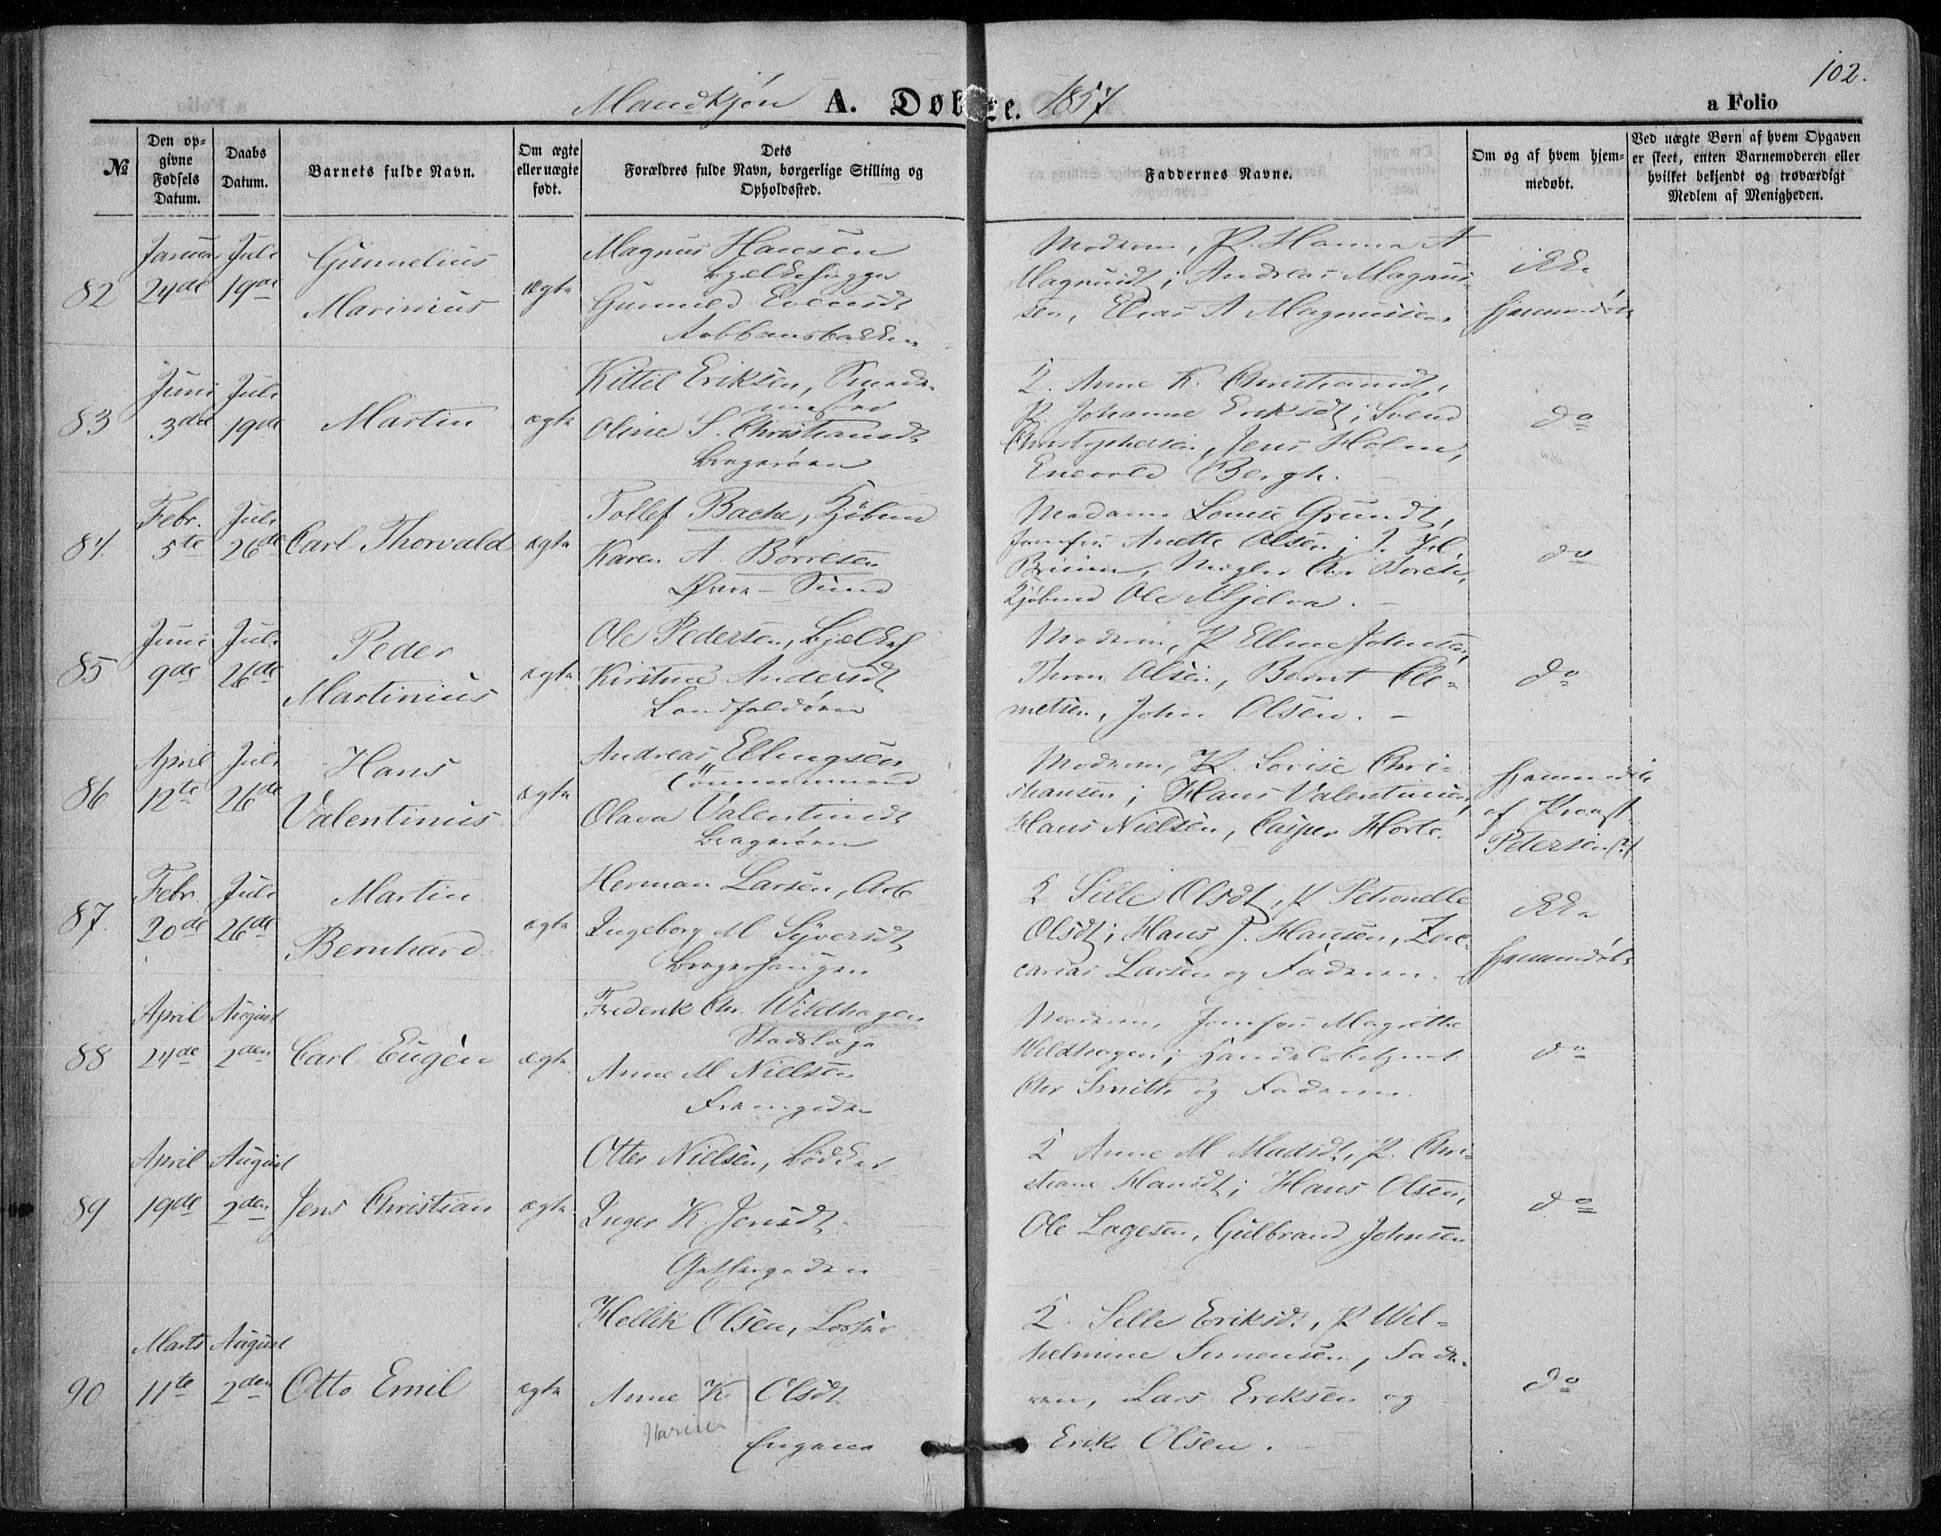 102.
Mandkjøn A. Døbte. 1857 a Folio
№ Den opgivne Fødsels Datum. Daabs Datum. Barnets fulde Navn. Om ægte eller uægte født. Dets Forældres fulde Navn, borgerlige Stilling og Opholdssted. Faddernes Navne. Om og af hvem hjemmedøbt. Ved uægte Børn af hvem Opgaven er skeet, enten Barnemoderen eller hvilket bekjendt og troværdigt Medlem af Menigheden.
82 Januar 24de Juli 19de Gunnelius Marinius ægte
Magnus Hansen
Bjælkehugger
Gunnild Evensdt
Moderen, P. Hanna A
Magnusdt; Andreas Magnus-
sen, Elias A Magnussen
ikke
hjemmedøbt
83 Juni 3die Juli 19de Martin ægte
Kittil Eriksen, Smede-
mester
Oline S. Christiansdt
Bragerøen
K. Anne K. Christiansdt,
P Johanne Eriksdt; Svend
Christophersen, Jens Holm,
Enevold Bergh.
do
84. Febr. 5te Juli 26de Carl Thorvald ægte
Tollef Bache, Kjøbmd
Karen A Børresen
Øvre-Sund
Madame Louise Grundt,
Jomfru Anette Olsen; J. H.
Bruun, Mægler Chr Borch,
Kjøbmd Ole Mjelva.
do
85 Juni 9de Juli 26de Peder Martinius ægte
Ole Pedersen, Bjælkeh
Kirstine Andersdt
Landfaldøen
Moderen, P Elline Johnsen,
Thron Olsen, Bernt Cle-
metsen, John Olsen.
do
86 April 12te Juli 26de Hans Valentinius ægte
Andreas Ellingsen
Tømmermand
Olava Valentinsdt
Bragerøen
Moderen, P. Lovise Chri-
stiansen; Hans Valentinsen,
Hans Nielsen, Casper Horte.
hjemmedøbt
af Provst
Petersen
87. Febr. 20de Juli 26de Martin Bernhard ægte
Herman Larsen, Arb
Ingeborg M Syversdt
Bragerhaugen
K Sille Olsdt, P Petronelle
Olsdt; Hans J. Hansen, Zac-
carias Larsen og Faderen.
ikke
hjemmedøbt
88 April 24de August 2den Carl Eugén ægte
Frederik Chr. Wildhagen
Stadslæge
Anne M Nielsen
Moderen, Jomfru Magrethe
Wildhagen; Handelsbetjent
Chr Smith og Faderen.
do
89 April 19de August 2den Jens Christian ægte
Otter Nielsen, Bødker
Inger K. Jensdt.
K Anne M Madsdt, P. Chri-
stiane Hansdt; Hans Olsen,
Ole Lagesen, Gulbrand Johnsen
do
90 Marts 11te August 2den Otto Emil ægte
Hellik Olsen,
Anne K. Olsdt
Engene
K. Sille Eriksdt, P Wil-
helmine Simensen, Fade-
ren, Lars Eriksen og
Erik Olsen.
do